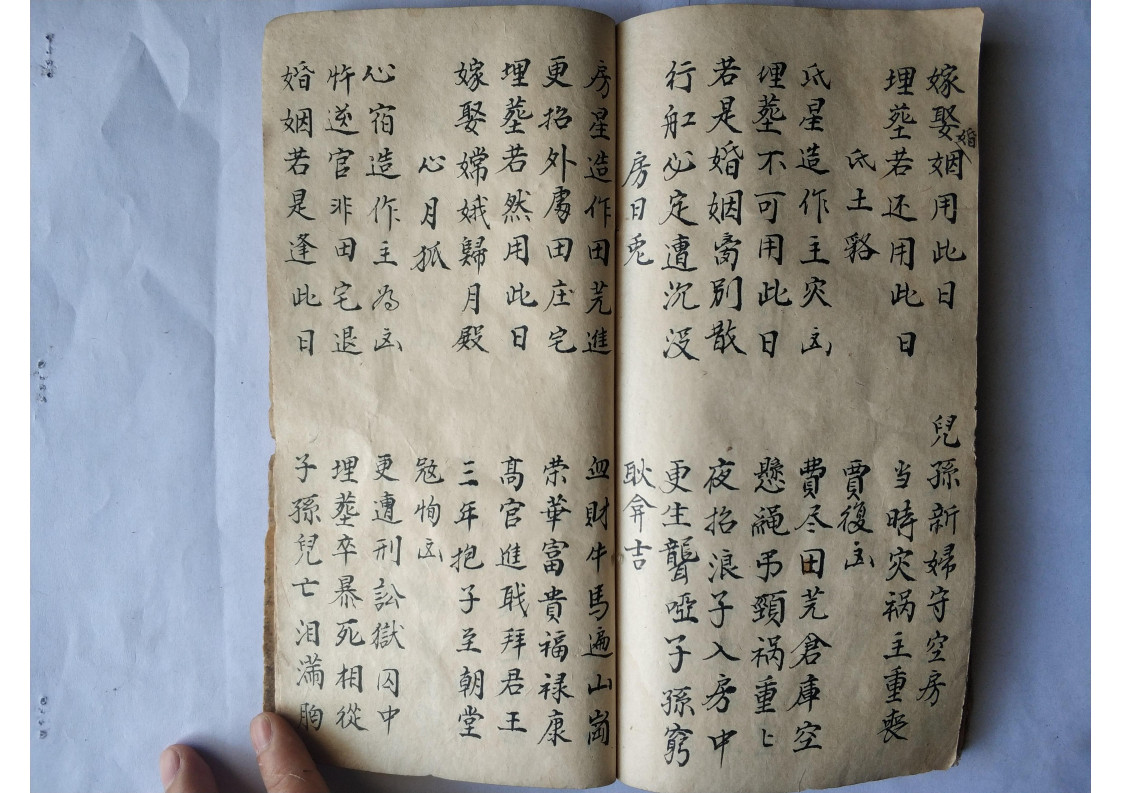 嫁娶婚姻用此日
兒孫新婦守空房
埋塟若还用此日
当時灾祸主重喪
氐土貉
賈復凶
氐星造作主灾凶
費尽田荒倉庫空
埋塟不可用此日
懸繩弔頸祸重〻
若是婚姻离别散
夜招浪子入房中
行船必定遭沉没
更生聾啞子孫窮
房日兎
耿弇吉
房星造作田荒進
血財牛馬遍山崗
更招外處田庄宅
荣華富貴福禄康
埋塟若然用此日
高官進戝拜君王
嫁娶嫦娥歸月殿
三年抱子至朝堂
心月狐
冦恂凶
心宿造作主為凶
更遭刑訟獄囚中
忤逆官非田宅退
埋塟卒暴死相從
婚姻若是逢此日
子孫兒亡泪满胸